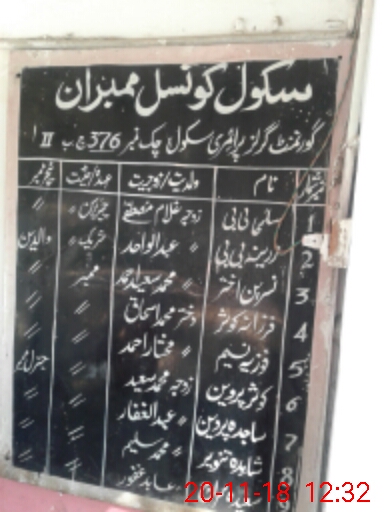 سکول کونسل ممبران
گورنمنٹ گرلز پرائمری سکول چک نمبر 376 ج ب II
نمبر شمار نام ولدیت/زوجیت عہدہ/حیثیت
1 سلمیٰ بی بی زوجہ غلام مصطفے چیئرپرسن 〃
2 زرینہ بی بی 〃 عبدالواحد شریک 〃 والدین
3 نسرین اختر 〃 محمد سعید احمد ممبر 〃
4 فرزانہ کوثر دختر محمد اسحاق 〃 〃
5 فوزیہ نسیم 〃 مختار احمد 〃 جنرل ممبر
6 کوثر پروین زوجہ محمد سعید 〃 〃
7 ساجدہ پروین 〃 عبدالغفار 〃 〃
8 شاہدہ تنویر 〃 محمد سلیم 〃 〃
عابد غفور 〃
20-11-18 12:32